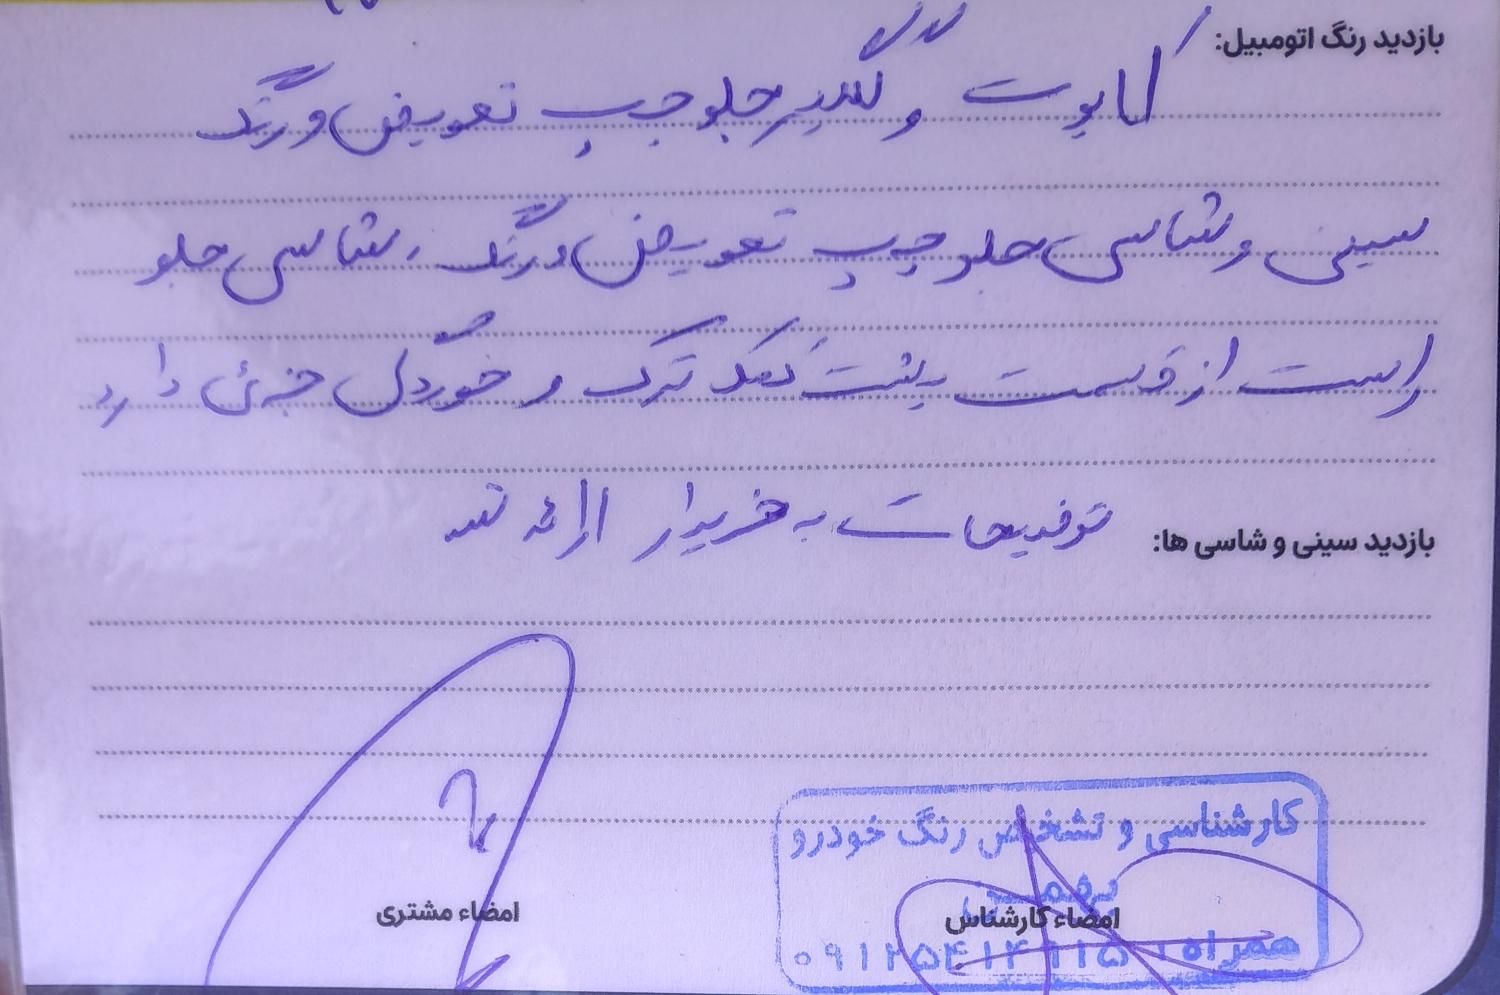 بازدید رنگ اتومبیل:
کاپوت و گلگیر جلو چپ تعویض و رنگ
سینی و شاسی جلو چپ تعویض و رنگ، شاسی جلو
راست از قسمت پشت کمک ترک و خوردگی جزئی دارد
بازدید سینی و شاسی ها: توضیحات به خریدار ارائه شد
کارشناسی و تشخیص رنگ خودرو
امضاء کارشناس
امضاء مشتری
همراه: